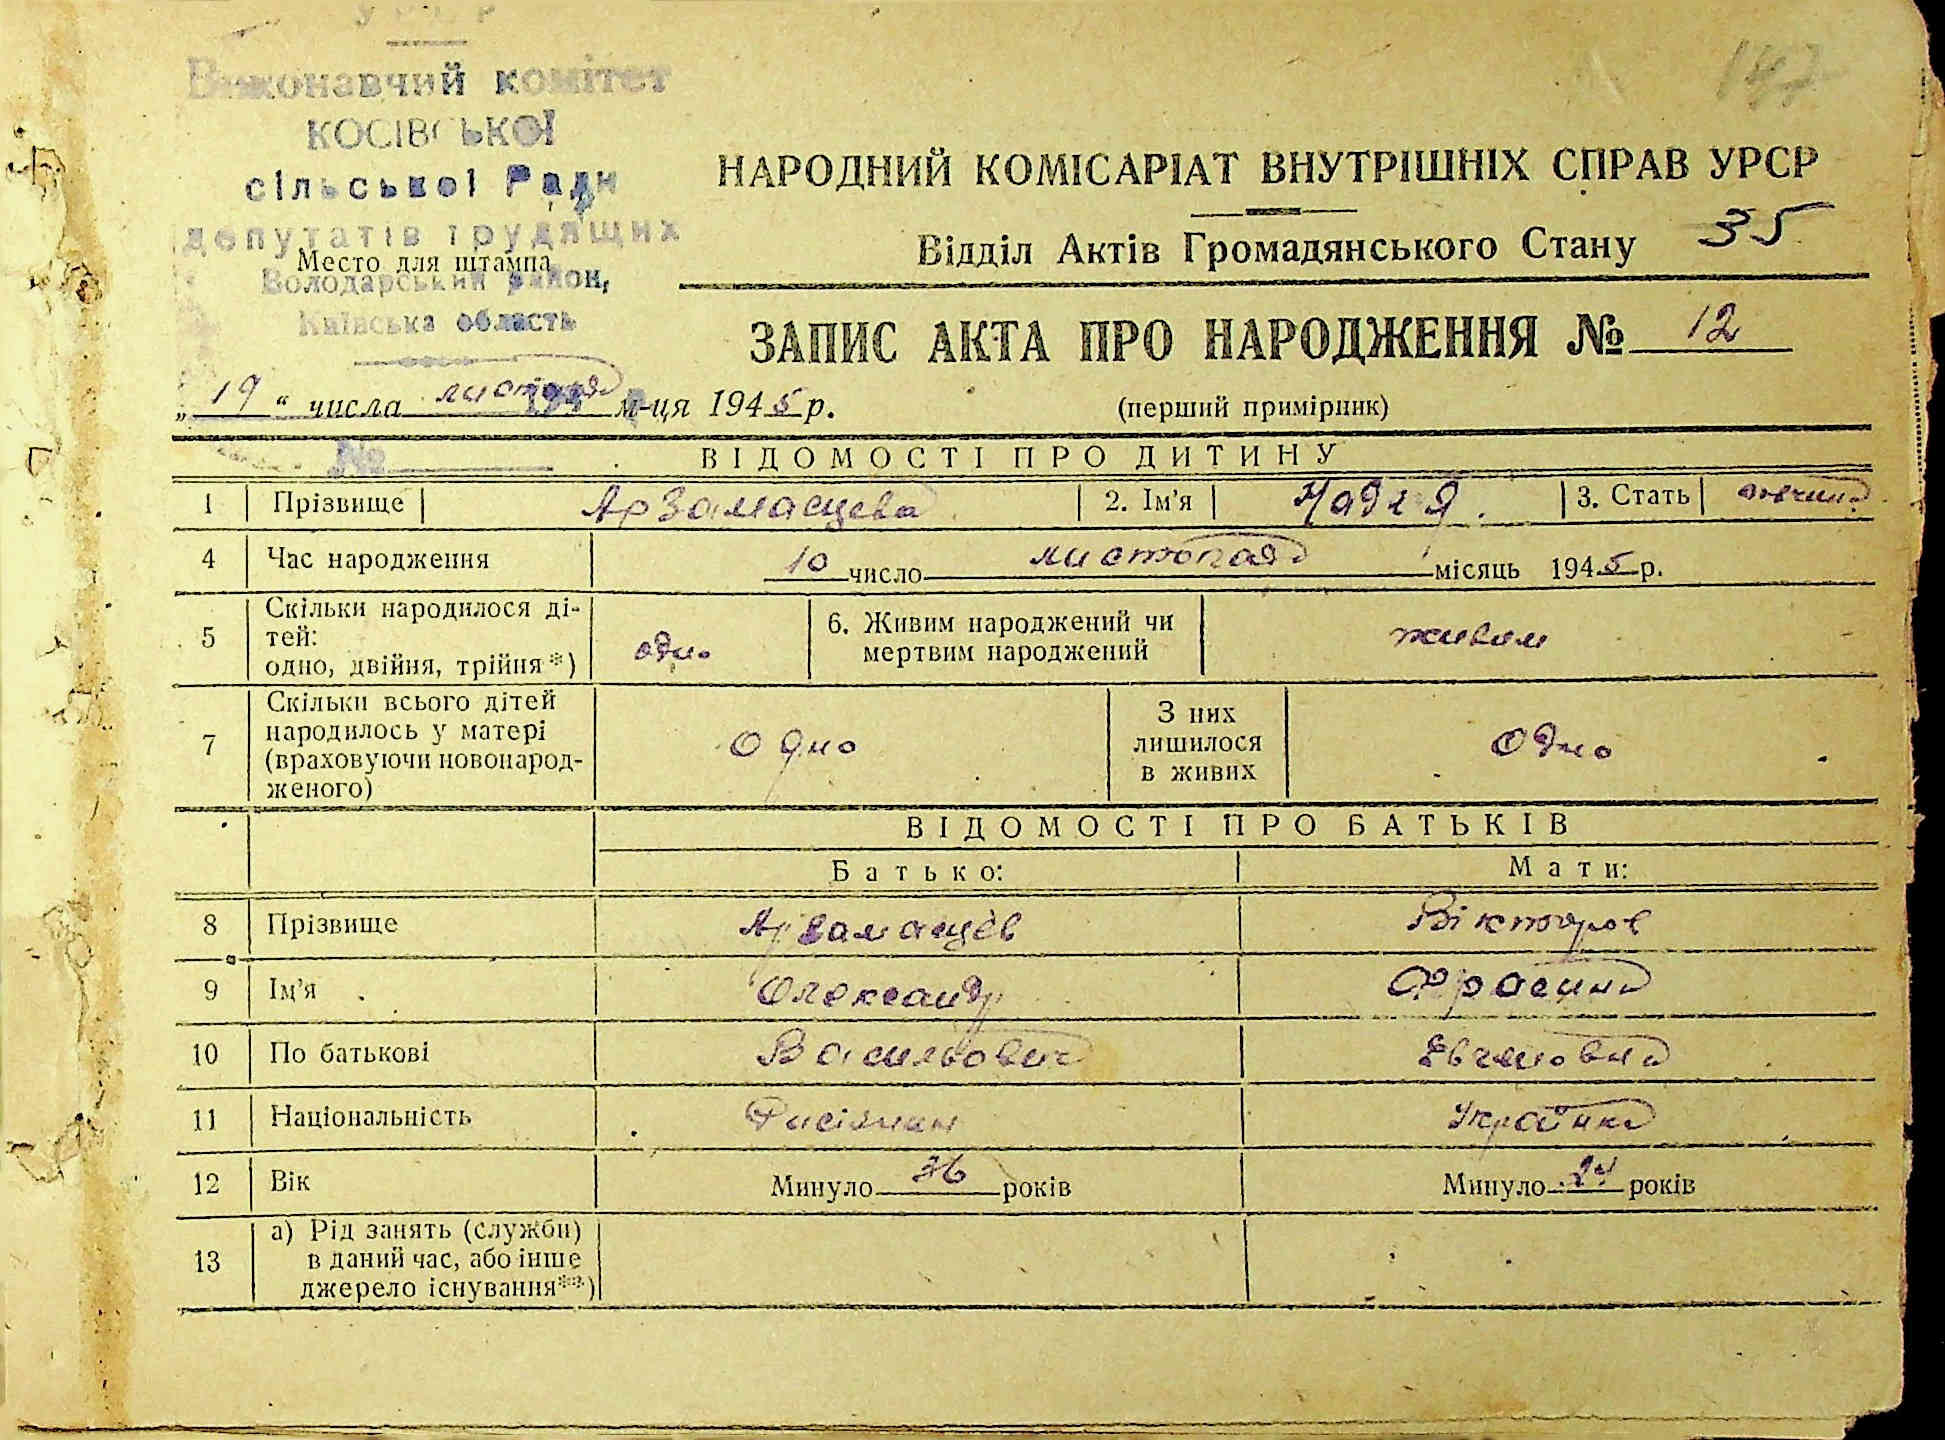 УРСР
Виконавчий комітет
КОСІВСЬКОЇ
сільської Ради
депутатів трудящих
Место для штампа
Володарський район,
Київська область
147
НАРОДНИЙ КОМІСАРІАТ ВНУТРІШНІХ СПРАВ УРСР
Відділ Актів Громадянського Стану 35
ЗАПИС АКТА ПРО НАРОДЖЕННЯ № 12
„19“ числа листопада м-ця 1945 р.
(перший примірник)
№
ВІДОМОСТІ ПРО ДИТИНУ
1 Прізвище Арзамасцева 2. Ім'я Надія 3. Стать
4 Час народження 10 число листопада місяць 1945 р.
5 Скільки народилося ді-
тей:
одно, двійня, трійня*) одно 6. Живим народжений чи
мертвим народжений живим
7 Скільки всього дітей
народилось у матері
(враховуючи новонарод-
женого) Одно З них
лишилося
в живих Одно
ВІДОМОСТІ ПРО БАТЬКІВ
Батько: Мати:
8 Прізвище Арзамасцев Вікторов
9 Ім'я Олександр Фросина
10 По батькові Васильович
11 Національність Українка
12 Вік Минуло 36 років Минуло 24 років
13 а) Рід занять (служби)
в даний час, або інше
джерело існування**)